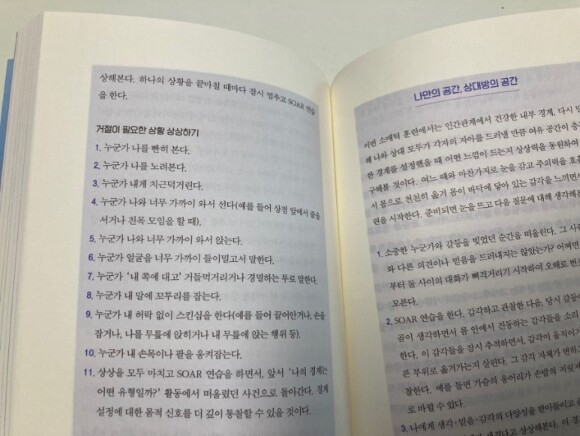 상해본다. 하나의 상황을 끝마칠 때마다 잠시 멈추고 SOAR 연습
을 한다.
거절이 필요한 상황 상상하기
1. 누군가 나를 빤히 본다.
2. 누군가 나를 노려본다.
3. 누군가 내게 치근덕거린다.
4. 누군가 나와 너무 가까이 와서 선다(예를 들어 상점 앞에서 줄을
서거나 친목 모임을 할 때).
5. 누군가 나와 너무 가까이 와서 앉는다.
6. 누군가 얼굴을 너무 가까이 들이밀고서 말한다.
7. 누군가 '내 쪽에 대고' 거들먹거리거나 경멸하는 투로 말한다.
8. 누군가 내 말에 꼬투리를 잡는다.
9. 누군가 내 허락 없이 스킨십을 한다(예를 들어 끌어안거나, 손을
잡거나, 나를 무릎에 앉히거나 내 무릎에 앉는 행위 등).
10. 누군가 내 손목이나 팔을 움켜잡는다.
11. 상상을 모두 마치고 SOAR 연습을 하면서, 앞서 '나의 경계는
어떤 유형일까?' 활동에서 떠올렸던 사건으로 돌아간다. 경계
설정에 대한 몸적 신호를 더 깊이 통찰할 수 있을 것이다.
나만의 공간, 상대방의 공간
이번 소매틱 훈련에서는 인간관계에서 건강한 내부 경계, 다시
해 나와 상대 모두가 각자의 자아를 드러낼 만큼 여유 공간이 충
한 경계를 설정했을 때 어떤 느낌이 드는지 상상력을 동원하여
구해볼 것이다. 어느 때와 마찬가지로 눈을 감고 주의력을 호흡
서 몸으로 천천히 옮겨 몸이 바닥에 닿아 있는 감각을 느끼면서
련을 시작한다. 준비되면 눈을 뜨고 다음 질문에 대해 생각해
1. 소중한 누군가와 갈등을 빚었던 순간을 떠올린다. 그 사
와 다른 의견이나 믿음을 드러내지는 않았는가? 어쩌면
부터 둘 사이의 대화가 삐걱거리기 시작하여 오해로 번
모른다.
2. SOAR 연습을 한다. 감각하고 관찰한 다음, 당시 갈등
곰이 생각하면서 몸 안에서 진동하는 감각들을 소리
한다. 이 감각들을 잠시 추적하면서, 감각이 움직이
른 부위로 옮겨가는지 살핀다. 그 감각 자체가 변하
찰한다. 예를 들면 가슴의 응어리가 손발의 저릿
로 바뀔 수 있다.
3. 나에게 생각·믿음·감각의 다양성을 받아들이고